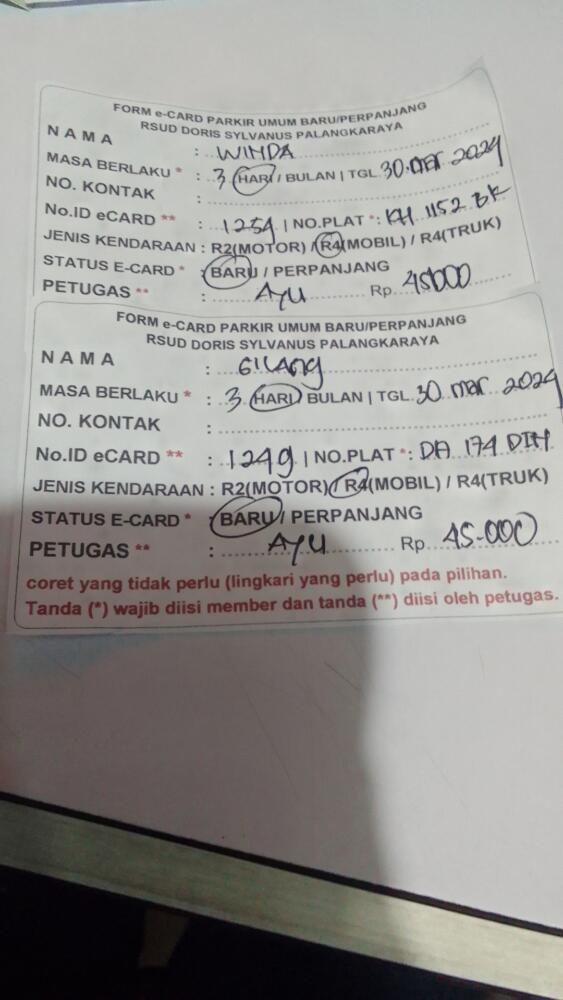 FORM e-CARD PARKIR UMUM BARU/PERPANJANG
RSUD DORIS SYLVANUS PALANGKARAYA
N A M A : WINDA
MASA BERLAKU * : 3 HARI / BULAN | TGL. 30 mar 2024
NO. KONTAK :
No.ID eCARD ** : 1254 | NO.PLAT *: KH 1152 BK
JENIS KENDARAAN : R2(MOTOR) / R4(MOBIL) / R4(TRUK)
STATUS E-CARD * : BARU / PERPANJANG
PETUGAS ** : AYU Rp. 45000
FORM e-CARD PARKIR UMUM BARU/PERPANJANG
RSUD DORIS SYLVANUS PALANGKARAYA
N A M A : GILANG
MASA BERLAKU * : 3 HARI / BULAN | TGL. 30 mar 2024
NO. KONTAK :
No.ID eCARD ** : 1249 | NO.PLAT *: DA 174 DIH
JENIS KENDARAAN : R2(MOTOR) / R4(MOBIL) / R4(TRUK)
STATUS E-CARD * : BARU / PERPANJANG
PETUGAS ** : AYU Rp. 45-000
coret yang tidak perlu (lingkari yang perlu) pada pilihan.
Tanda (*) wajib diisi member dan tanda (**) diisi oleh petugas.